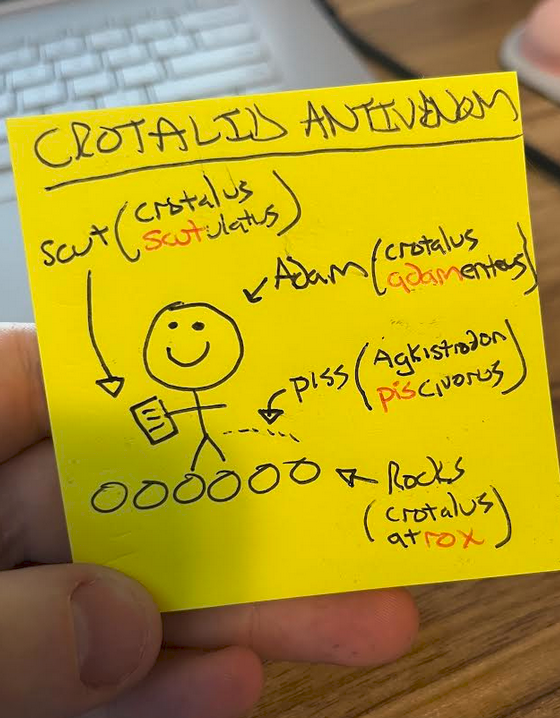 CROTALID ANTIVENOM
scut (crotalus
scutulatus)
Adam (crotalus
adamenteus)
piss (Agkistrodon
piscivorus)
Rocks
(crotalus
atrox)